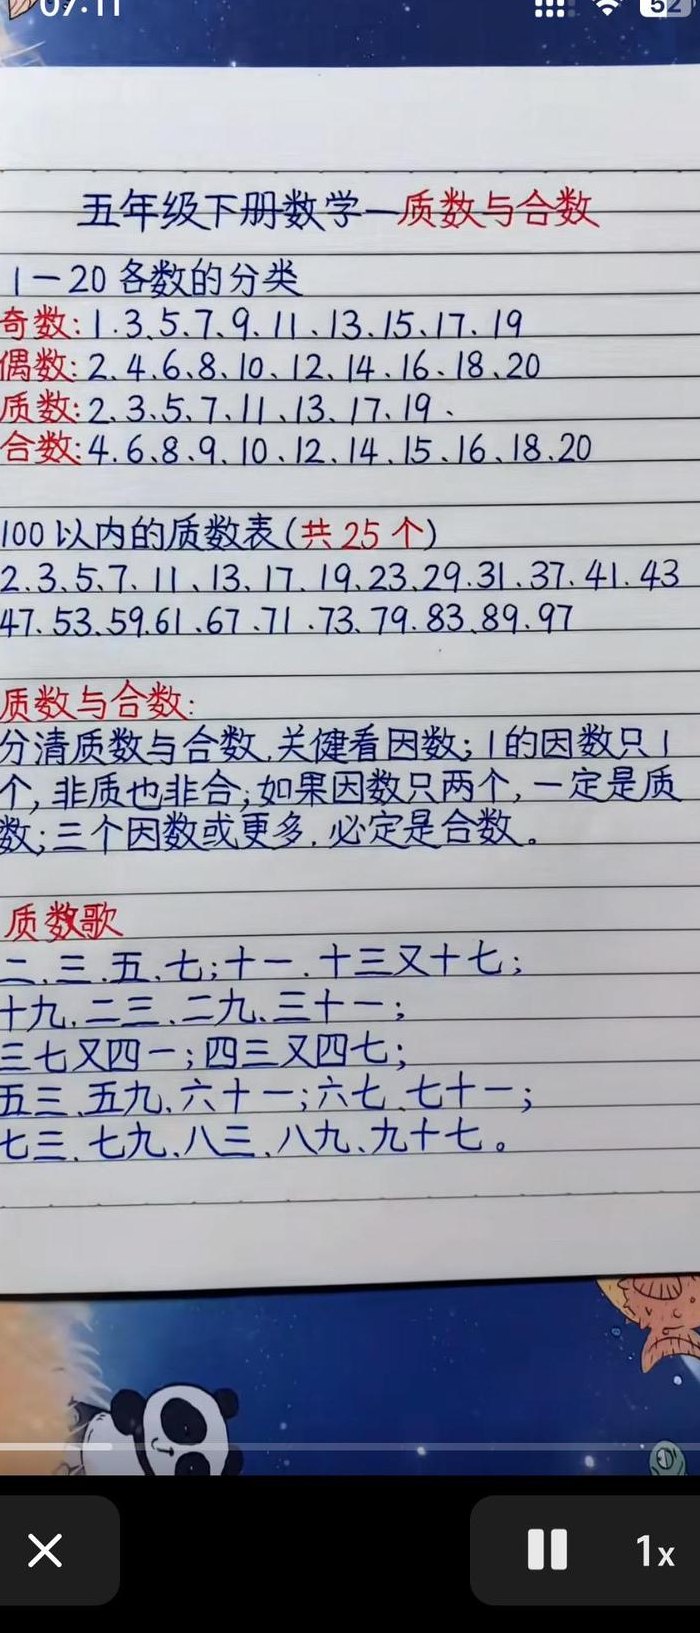 07:11
52
五年级下册数学—质数与合数
1—20各数的分类
奇数:1.3、5、7、9、11、13、15、17、19
偶数:2、4、6、8、10、12、14、16、18、20
质数:2、3、5、7、11、13、17、19、
合数:4.6、8、9、10、12、14、15、16、18、20
100以内的质数表(共25个)
2.3、5、7、11、13、17、19、23、29.31、37、41.43
47.53、59.61、67、71.73、79.83、89.97
质数与合数:
分清质数与合数,关健看因数;1的因数只1
个,非质也非合;如果因数只两个,一定是质
数;三个因数或更多,必定是合数。
质数歌
二、三、五、七;十一、十三又十七;
十九、二三、二九、三十一;
三七又四一;四三又四七;
五三、五九、六十一;六七、七十一;
七三、七九、八三、八九、九十七。
1x